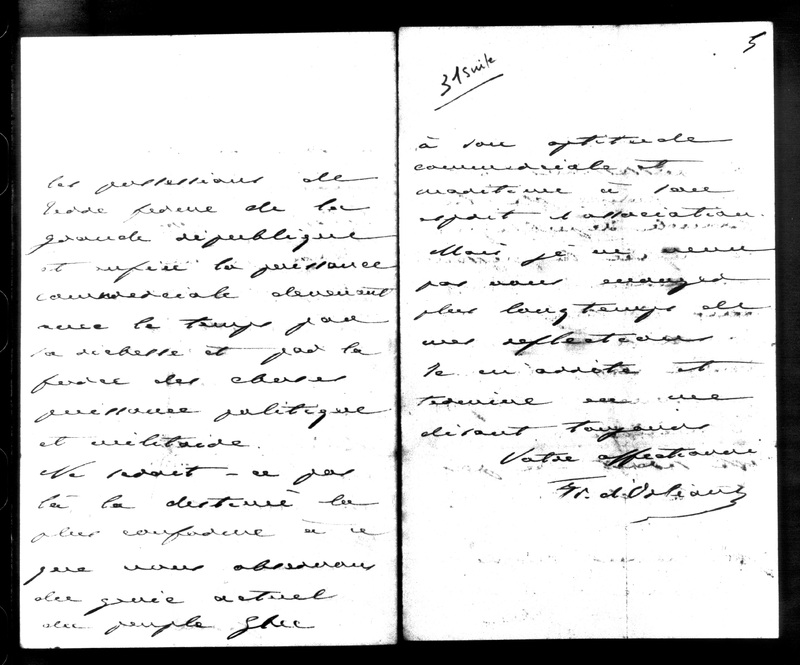 les possessions de
terre ferme de la
grande république
et enfin la puissance
commerciale devenant
avec le temps par
la richesse et par la
force des choses
puissance politique
et militaire.
Ne serait-ce pas
là la destinée la
plus conforme à ce
que nous observons
du génie actuel
du peuple Grec
31 suite
5
à son aptitude
commerciale et
maritime à son
esprit d'association.
Mais je ne veux
pas vous ennuyer
plus longtemps de
mes reflections.
Je m'arrête et
termine en me
disant toujours
Votre affectionné
Fr. d'Orléans